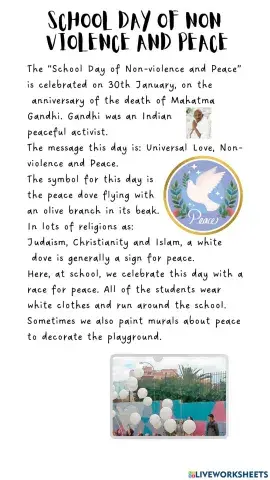 SCHOOL DAY OF NON
VIOLENCE AND PEACE
The "School Day of Non-violence and Peace"
is celebrated on 30th January, on the
anniversary of the death of Mahatma
Gandhi. Gandhi was an Indian
peaceful activist.
The message this day is: Universal Love, Non-
violence and Peace.
The symbol for this day is
the peace dove flying with
an olive branch in its beak.
Peace
In lots of religions as:
Judaism, Christianity and Islam, a white
dove is generally a sign for peace.
Here, at school, we celebrate this day with a
race for peace. All of the students wear
white clothes and run around the school.
Sometimes we also paint murals about peace
to decorate the playground.
LIVEWORKSHEETS